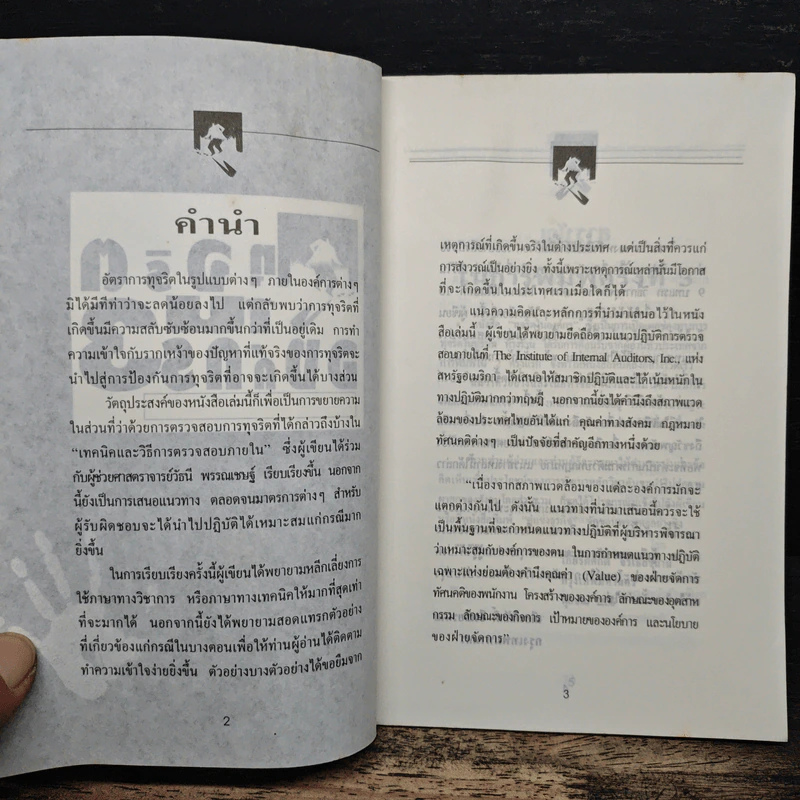 คำนำ
อัตราการทุจริตในรูปแบบต่างๆ ภายในองค์การต่างๆ
มิได้มีทีท่าว่าจะลดน้อยลงไป แต่กลับพบว่าการทุจริตที่
เกิดขึ้นมีความสลับซับซ้อนมากขึ้นกว่าที่เป็นอยู่เดิม การทำ
ความเข้าใจกับรากเหง้าของปัญหาที่แท้จริงของการทุจริตจะ
นำไปสู่การป้องกันการทุจริตที่อาจจะเกิดขึ้นได้บางส่วน
วัตถุประสงค์ของหนังสือเล่มนี้ก็เพื่อเป็นการขยายความ
ในส่วนที่ว่าด้วยการตรวจสอบการทุจริตที่ได้กล่าวถึงบ้างใน
“เทคนิคและวิธีการตรวจสอบภายใน” ซึ่งผู้เขียนได้ร่วม
กับผู้ช่วยศาสตราจารย์วัธนี พรรณเชษฐ์ เรียบเรียงขึ้น นอกจาก
นี้ยังเป็นการเสนอแนวทาง ตลอดจนมาตรการต่างๆ สำหรับ
ผู้รับผิดชอบจะได้นำไปปฏิบัติได้เหมาะสมแก่กรณีมาก
ยิ่งขึ้น
ในการเรียบเรียงครั้งนี้ผู้เขียนได้พยายามหลีกเลี่ยงการ
ใช้ภาษาทางวิชาการ หรือภาษาทางเทคนิคให้มากที่สุดเท่า
ที่จะมากได้ นอกจากนี้ยังได้พยายามสอดแทรกตัวอย่าง
ที่เกี่ยวข้องแก่กรณีในบางตอนเพื่อให้ท่านผู้อ่านได้ติดตาม
ทำความเข้าใจง่ายยิ่งขึ้น ตัวอย่างบางตัวอย่างได้ขอยืมจาก
2
เหตุการณ์ที่เกิดขึ้นจริงในต่างประเทศ แต่เป็นสิ่งที่ควรแก่
การสังวรณ์เป็นอย่างยิ่ง ทั้งนี้เพราะเหตุการณ์เหล่านั้นมีโอกาส
ที่จะเกิดขึ้นในประเทศเราเมื่อใดก็ได้
แนวความคิดและหลักการที่นำมาเสนอไว้ในหนัง
สือเล่มนี้ ผู้เขียนได้พยายามยึดถือตามแนวปฏิบัติการตรวจ
สอบภายในที่ The Institute of Internal Auditors, Inc., แห่ง
สหรัฐอเมริกา ได้เสนอให้สมาชิกปฏิบัติและได้เน้นหนักใน
ทางปฏิบัติมากกว่าทฤษฎี นอกจากนี้ยังได้คำนึงถึงสภาพแวด
ล้อมของประเทศไทยอันได้แก่ คุณค่าทางสังคม กฎหมาย
ทัศนคติต่างๆ เป็นปัจจัยที่สำคัญอีกทางหนึ่งด้วย
“เนื่องจากสภาพแวดล้อมของแต่ละองค์การมักจะ
แตกต่างกันไป ดังนั้น แนวทางที่นำมาเสนอนี้ควรจะใช้
เป็นพื้นฐานที่จะกำหนดแนวทางปฏิบัติที่ผู้บริหารพิจารณา
ว่าเหมาะสมกับองค์การของตน ในการกำหนดแนวทางปฏิบัติ
เฉพาะแห่งย่อมต้องคำนึงคุณค่า (Value) ของฝ่ายจัดการ
ทัศนคติของพนักงาน โครงสร้างขององค์การ ลักษณะของอุตสาห
กรรม ลักษณะของกิจการ เป้าหมายขององค์การ และนโยบาย
ของฝ่ายจัดการ”
3